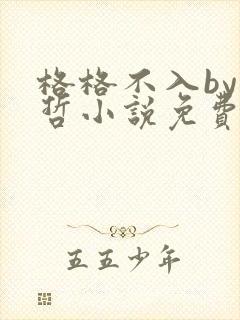 格格不入by
哲小説免費
五五少年